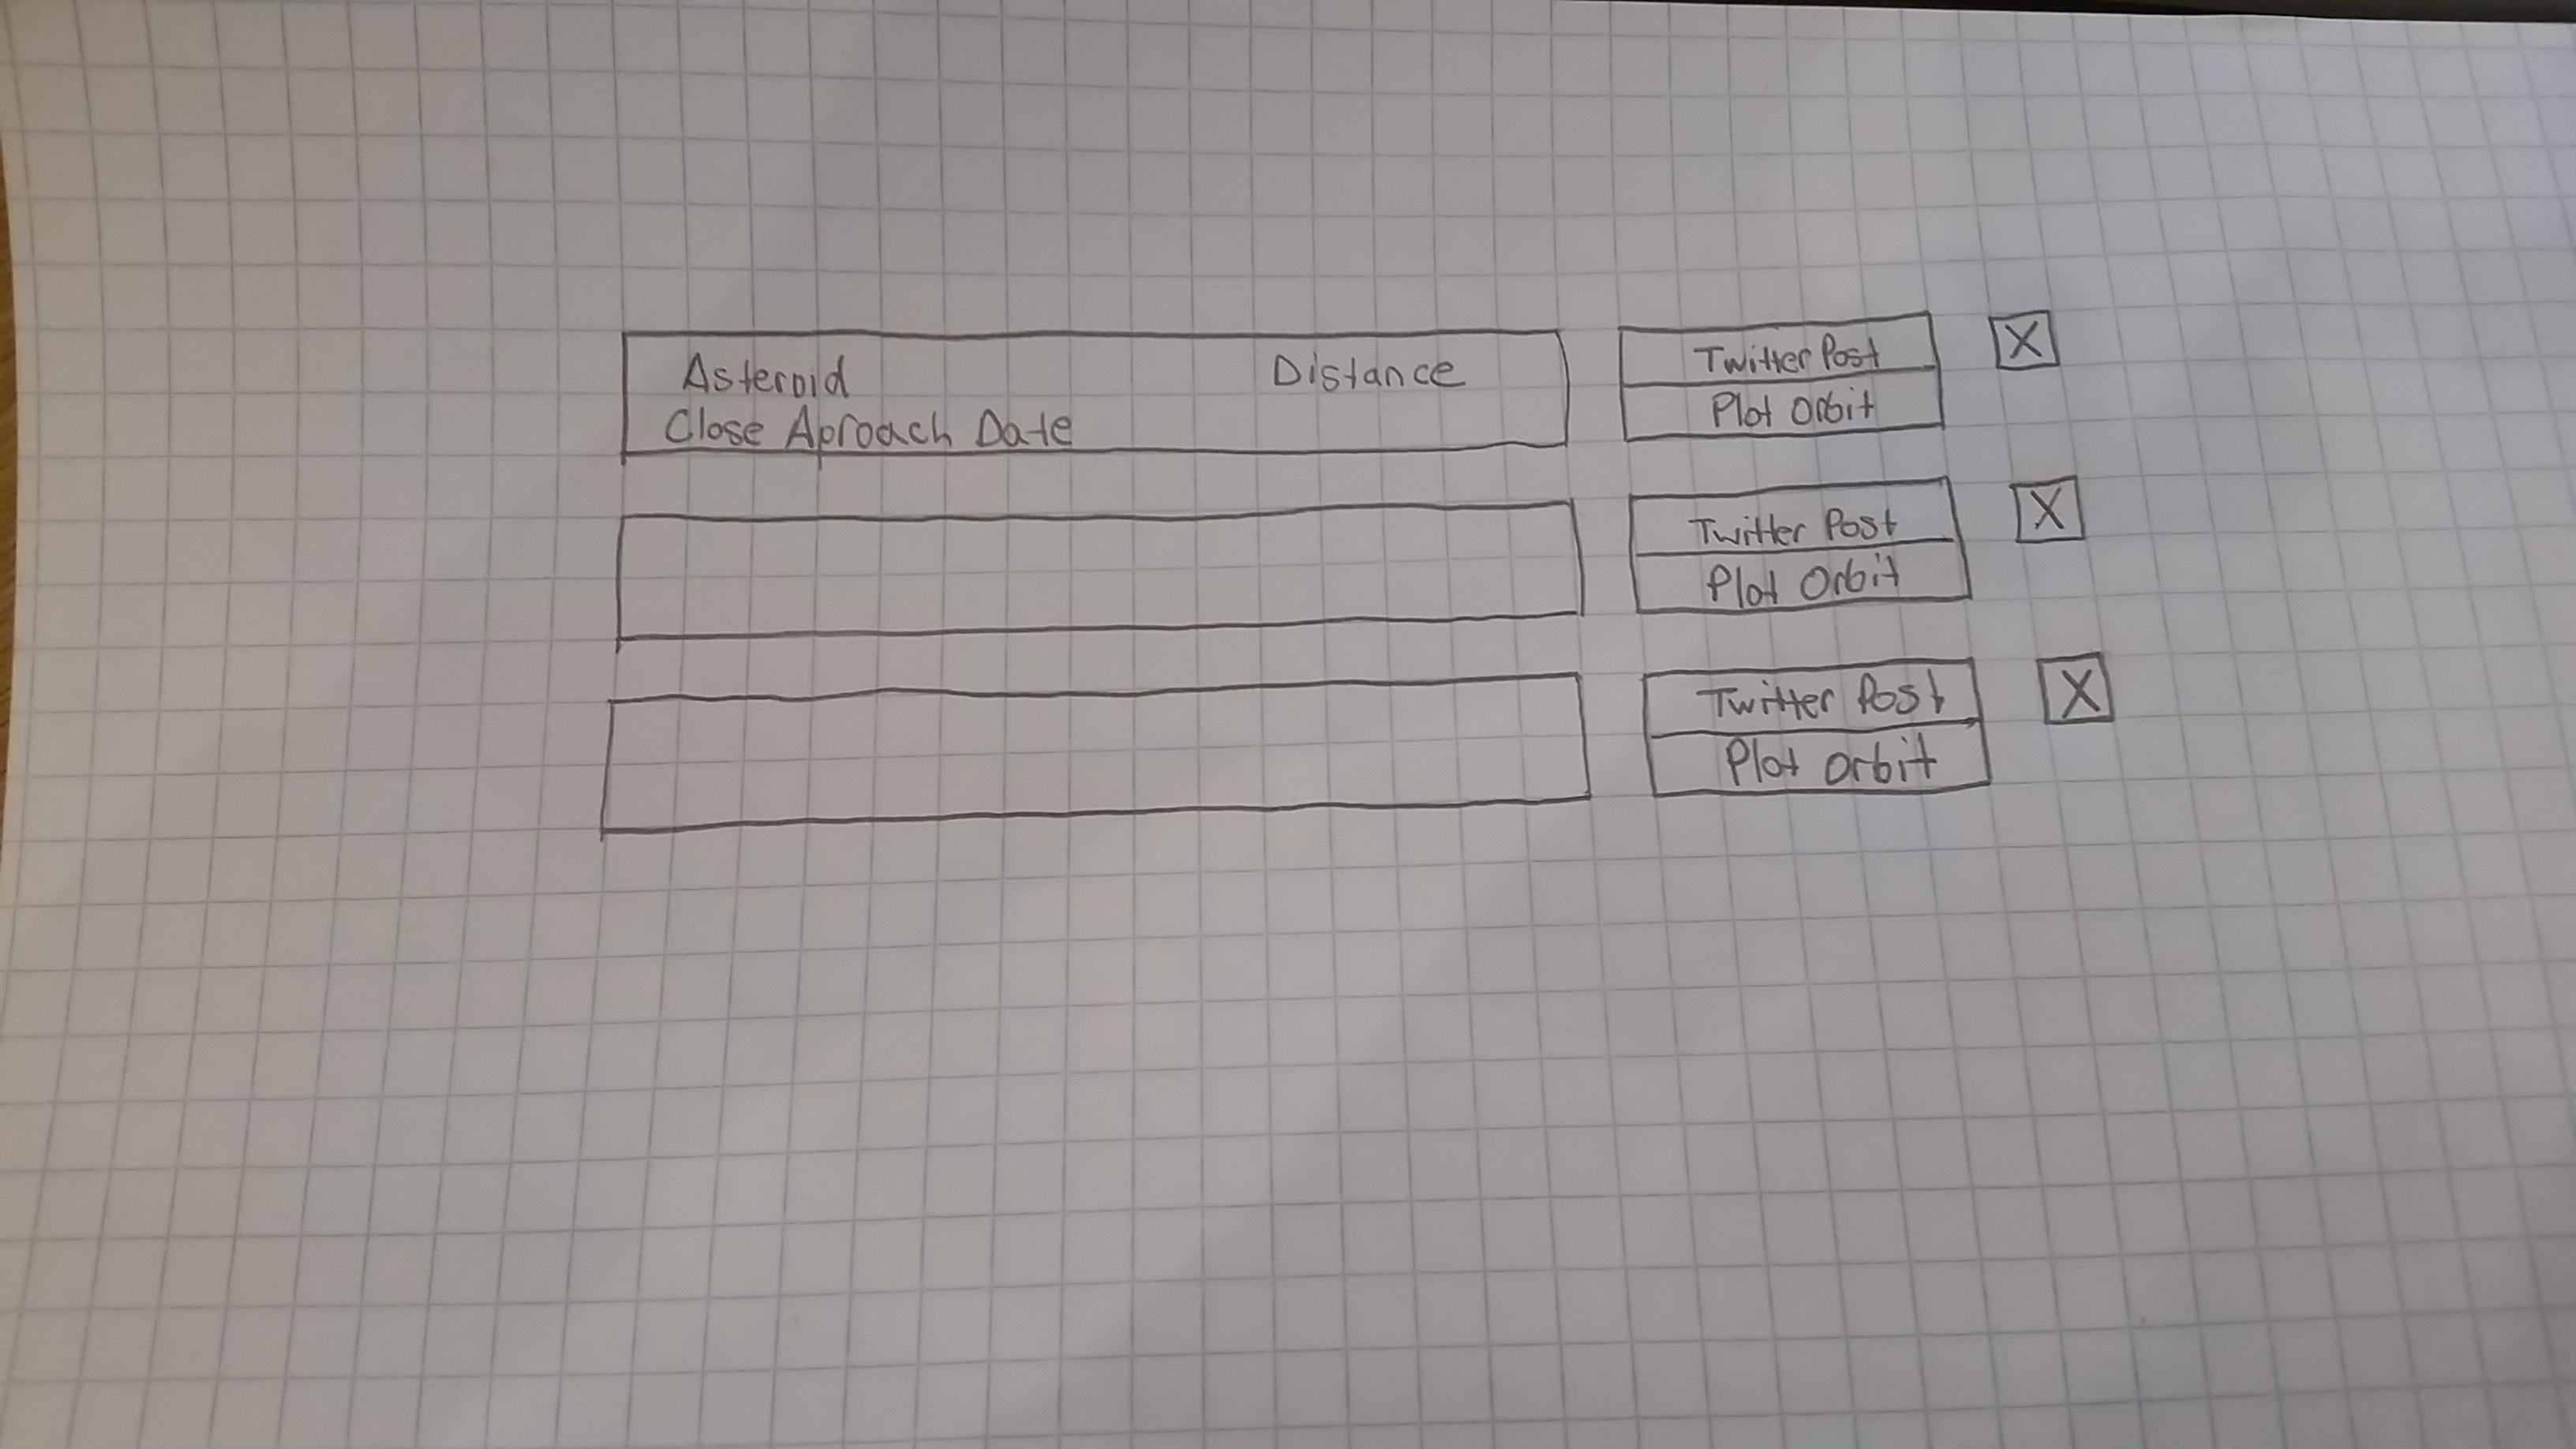 Asteroid Distance
Close Aproach Date
Twitter Post
Plot Orbit
X
Twitter Post
Plot Orbit
X
Twitter Post
Plot orbit
X